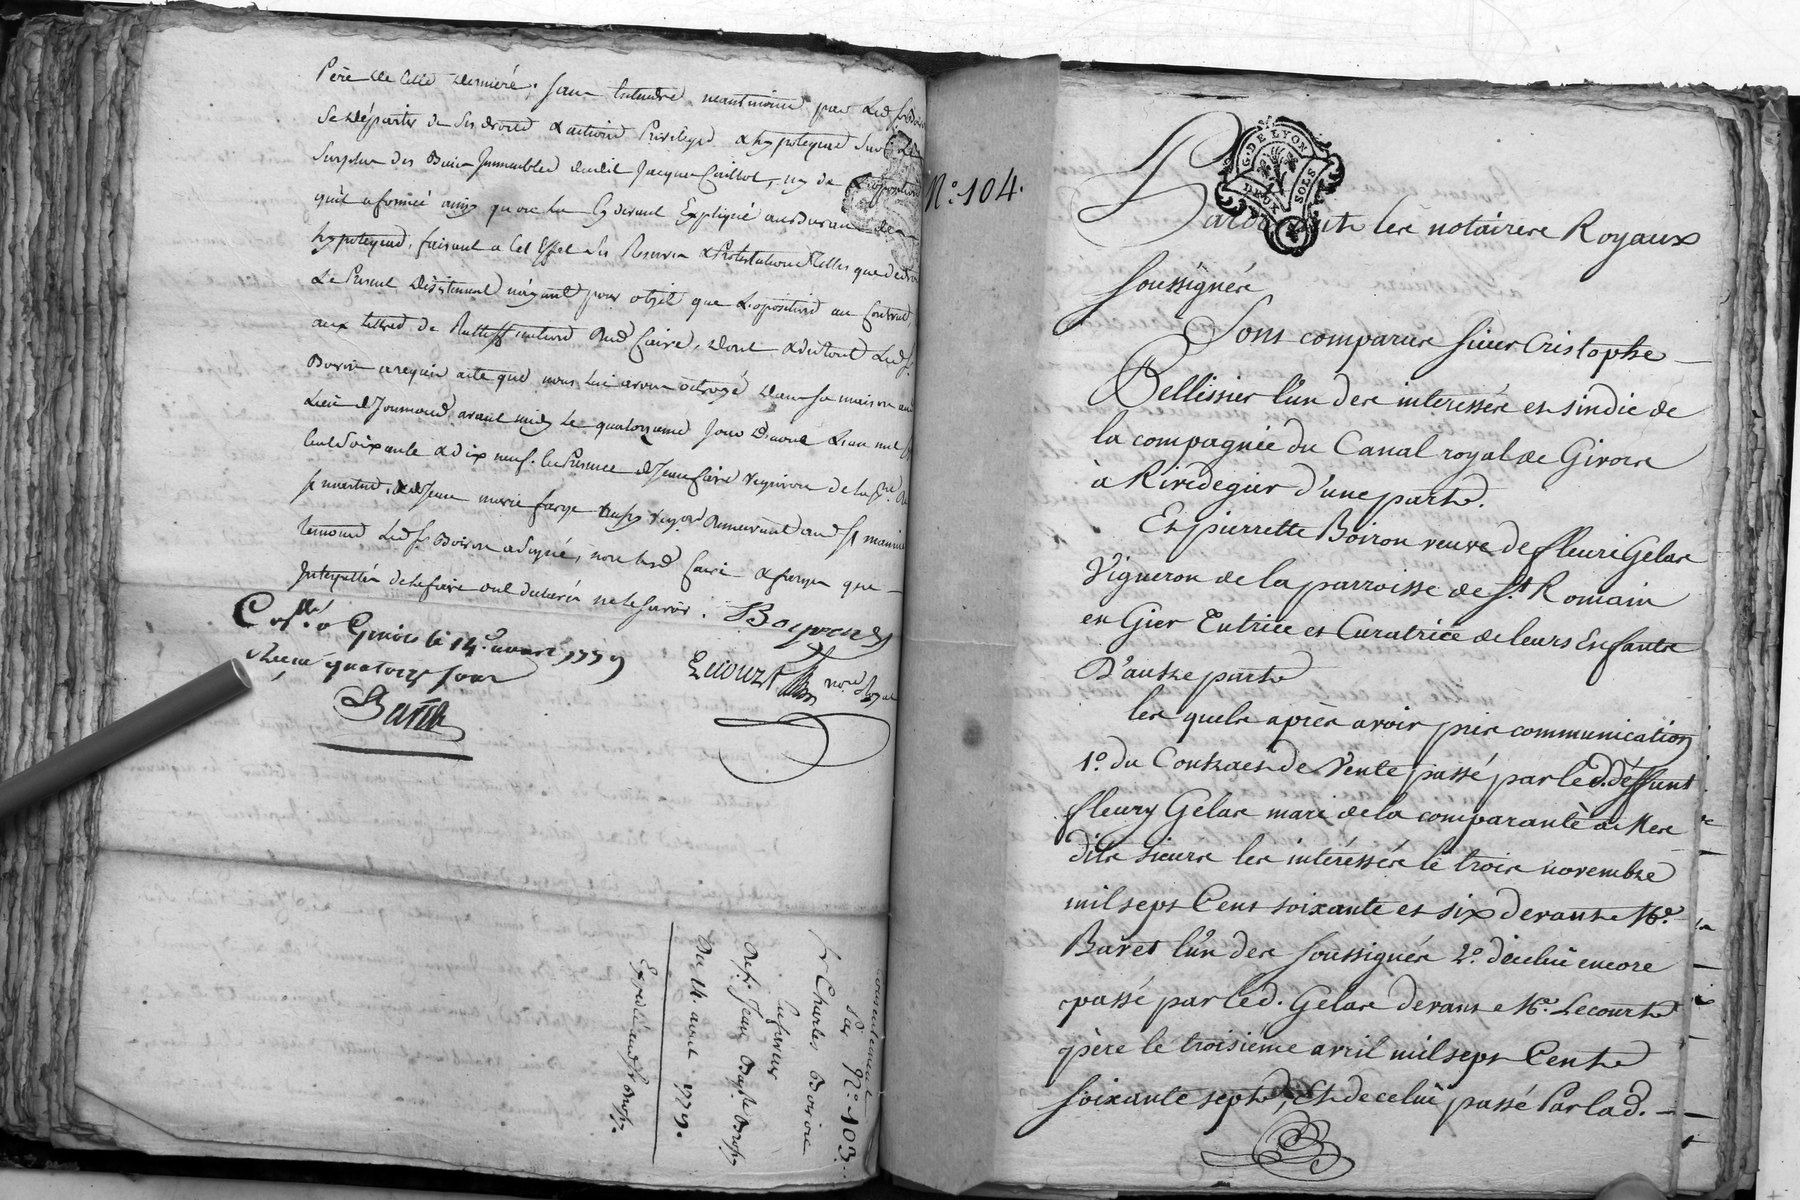 Père de cette derniere, sans entendre neantmoins par led. Sr Boiron
se départir de ses droits & actions Privileges & hypoteques sur le
surplus des Biens Immeubles dudit Jacques Caillot, ny de l'opposition
qu'il a formée ainsy que cela Cy devant Expliqué au Bureau des
hypoteques, faisant a Cet Effet ses Reserves & Protestations telles que de droit
Le Present Désistement n'ayant pour objet que l'oposition au Contrat
aux lettres de Ratiffications dud. Caire, dont & du tout led. Sr.
Boiron a requis acte que nous lui avons octroyé dans sa maison au
Lieu de avant midy le quatorzieme Jour D'avril L'an mil sept
Cent Soixante & dix neuf. En Presence de Jean faire vigneron de la psse. de
St. martin, & de Jean marie farge aussy vigon. Demeurant aud. St. maurice
temoins Led. Sr. Boiron a signé, non lesd. faire & farge que
Interpellés de le faire ont declaré ne le savoir.
Boyron
Collé. à Givors le 14e. avril 1779
Reçu quatorze sous
Lecourt nore. Royal
Barre
Par N°. 103.
Sr Charles Boiron
En faveur
De Sr. Jean Bapte Brossy
Du 14. avril 1779.
Expedié aud. Sr Brossy.
N°. 104.
G. DE LYON
DEUX SOLS
Pardevant les notaires Royaux
soussignés
Sont comparus sieur Cristophe
Bellissier l'un des interessés et sindic de
la compagnie du Canal royal de Givors
à Rivedegier d'une part.
Et pierrette Boiron veuve de fleuri Gelas
Vigneron de la parroisse de St. Romain
en Gier Tutrice et Curatrice de leurs Enfants
D'autre part
les quels après avoir pris communication
1°. du Contract de Vente passé par led. déffunt
fleury Gelas mari de la comparante à Mes
dits sieurs les intéréssés le trois novembre
mil sept Cent soixante et six devant Me.
Baret l'un des soussignés 2°. de celui encore
passé par led. Gelas devant Me. Lecourt
père le troisiéme avril mil sept Cent
soixante sept, Et de celui passé Par lad.